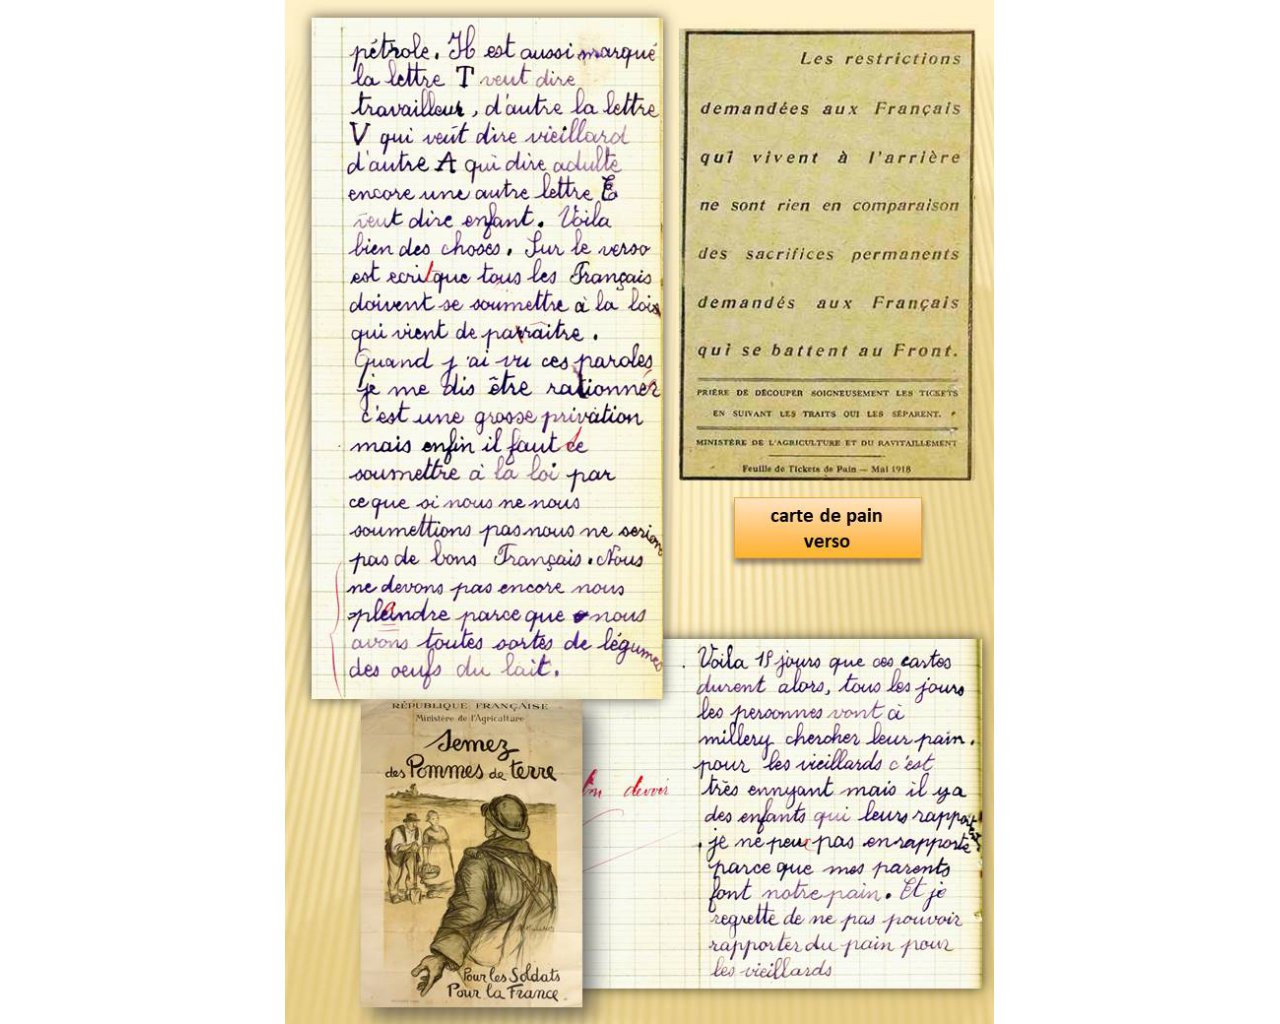 pétrole. Il est aussi marqué
la lettre T veut dire
travailleur, d'autre la lettre
V qui veut dire vieillard
d'autre A qui dire adulte
encore une autre lettre E
veut dire enfant. Voila
bien des choses. Sur le verso
est ecrit que tous les Français
doivent se soumettre à la lois
qui vient de parraitre.
Quand j'ai vu ces paroles
je me dis être rationner
c'est une grosse privation
mais enfin il faut se
soumettre à la loi par
ce que si nous ne nous
soumettions pas nous ne serions
pas de bons Français. Nous
ne devons pas encore nous
plaindre parce que nous
avons toutes sortes de légumes
des oeufs du lait.
Les restrictions
demandées aux Français
qui vivent à l'arrière
ne sont rien en comparaison
des sacrifices permanents
demandés aux Français
qui se battent au Front.
PRIÈRE DE DÉCOUPER SOIGNEUSEMENT LES TICKETS
EN SUIVANT LES TRAITS QUI LES SÉPARENT.
MINISTÈRE DE L'AGRICULTURE ET DU RAVITAILLEMENT
Feuille de Tickets de Pain — Mai 1918
carte de pain
verso
Voila 15 jours que ces cartes
durent alors, tous les jours
les personnes vont à
millery chercher leur pain.
pour les vieillards c'est
très ennyant mais il y a
des enfants qui leurs rapportent
je ne peux pas en rapporte
parce que mes parents
font notre pain. Et je
regrette de ne pas pouvoir
rapporter du pain pour
les vieillards
devoir
RÉPUBLIQUE FRANÇAISE
Ministère de l'Agriculture
Semez
des Pommes de terre
Pour les Soldats
Pour la France